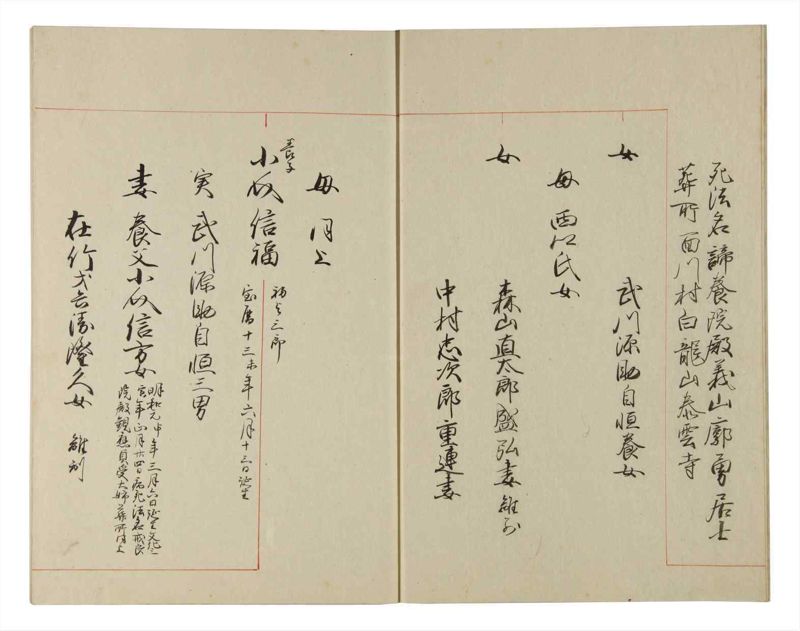 死法名諦養院殿義山廓勇居士
葬所西川村白龍山泰雲寺
女 武川源助自恒養女
母 西氏女
女 森山直太郎盛弘妻 離別
中村志次郎重連妻
母 同上
養子
小飯信福 初与三郎
宝暦十三未年六月十三日誕生
実 武川源助自恒三男
妻 養父小飯信女
明和元申年三月六日誕生文化三
寅年正月廿四日病死法名戒
院殿観貞受大姉葬所同上
在竹兵衛澄久女 離別